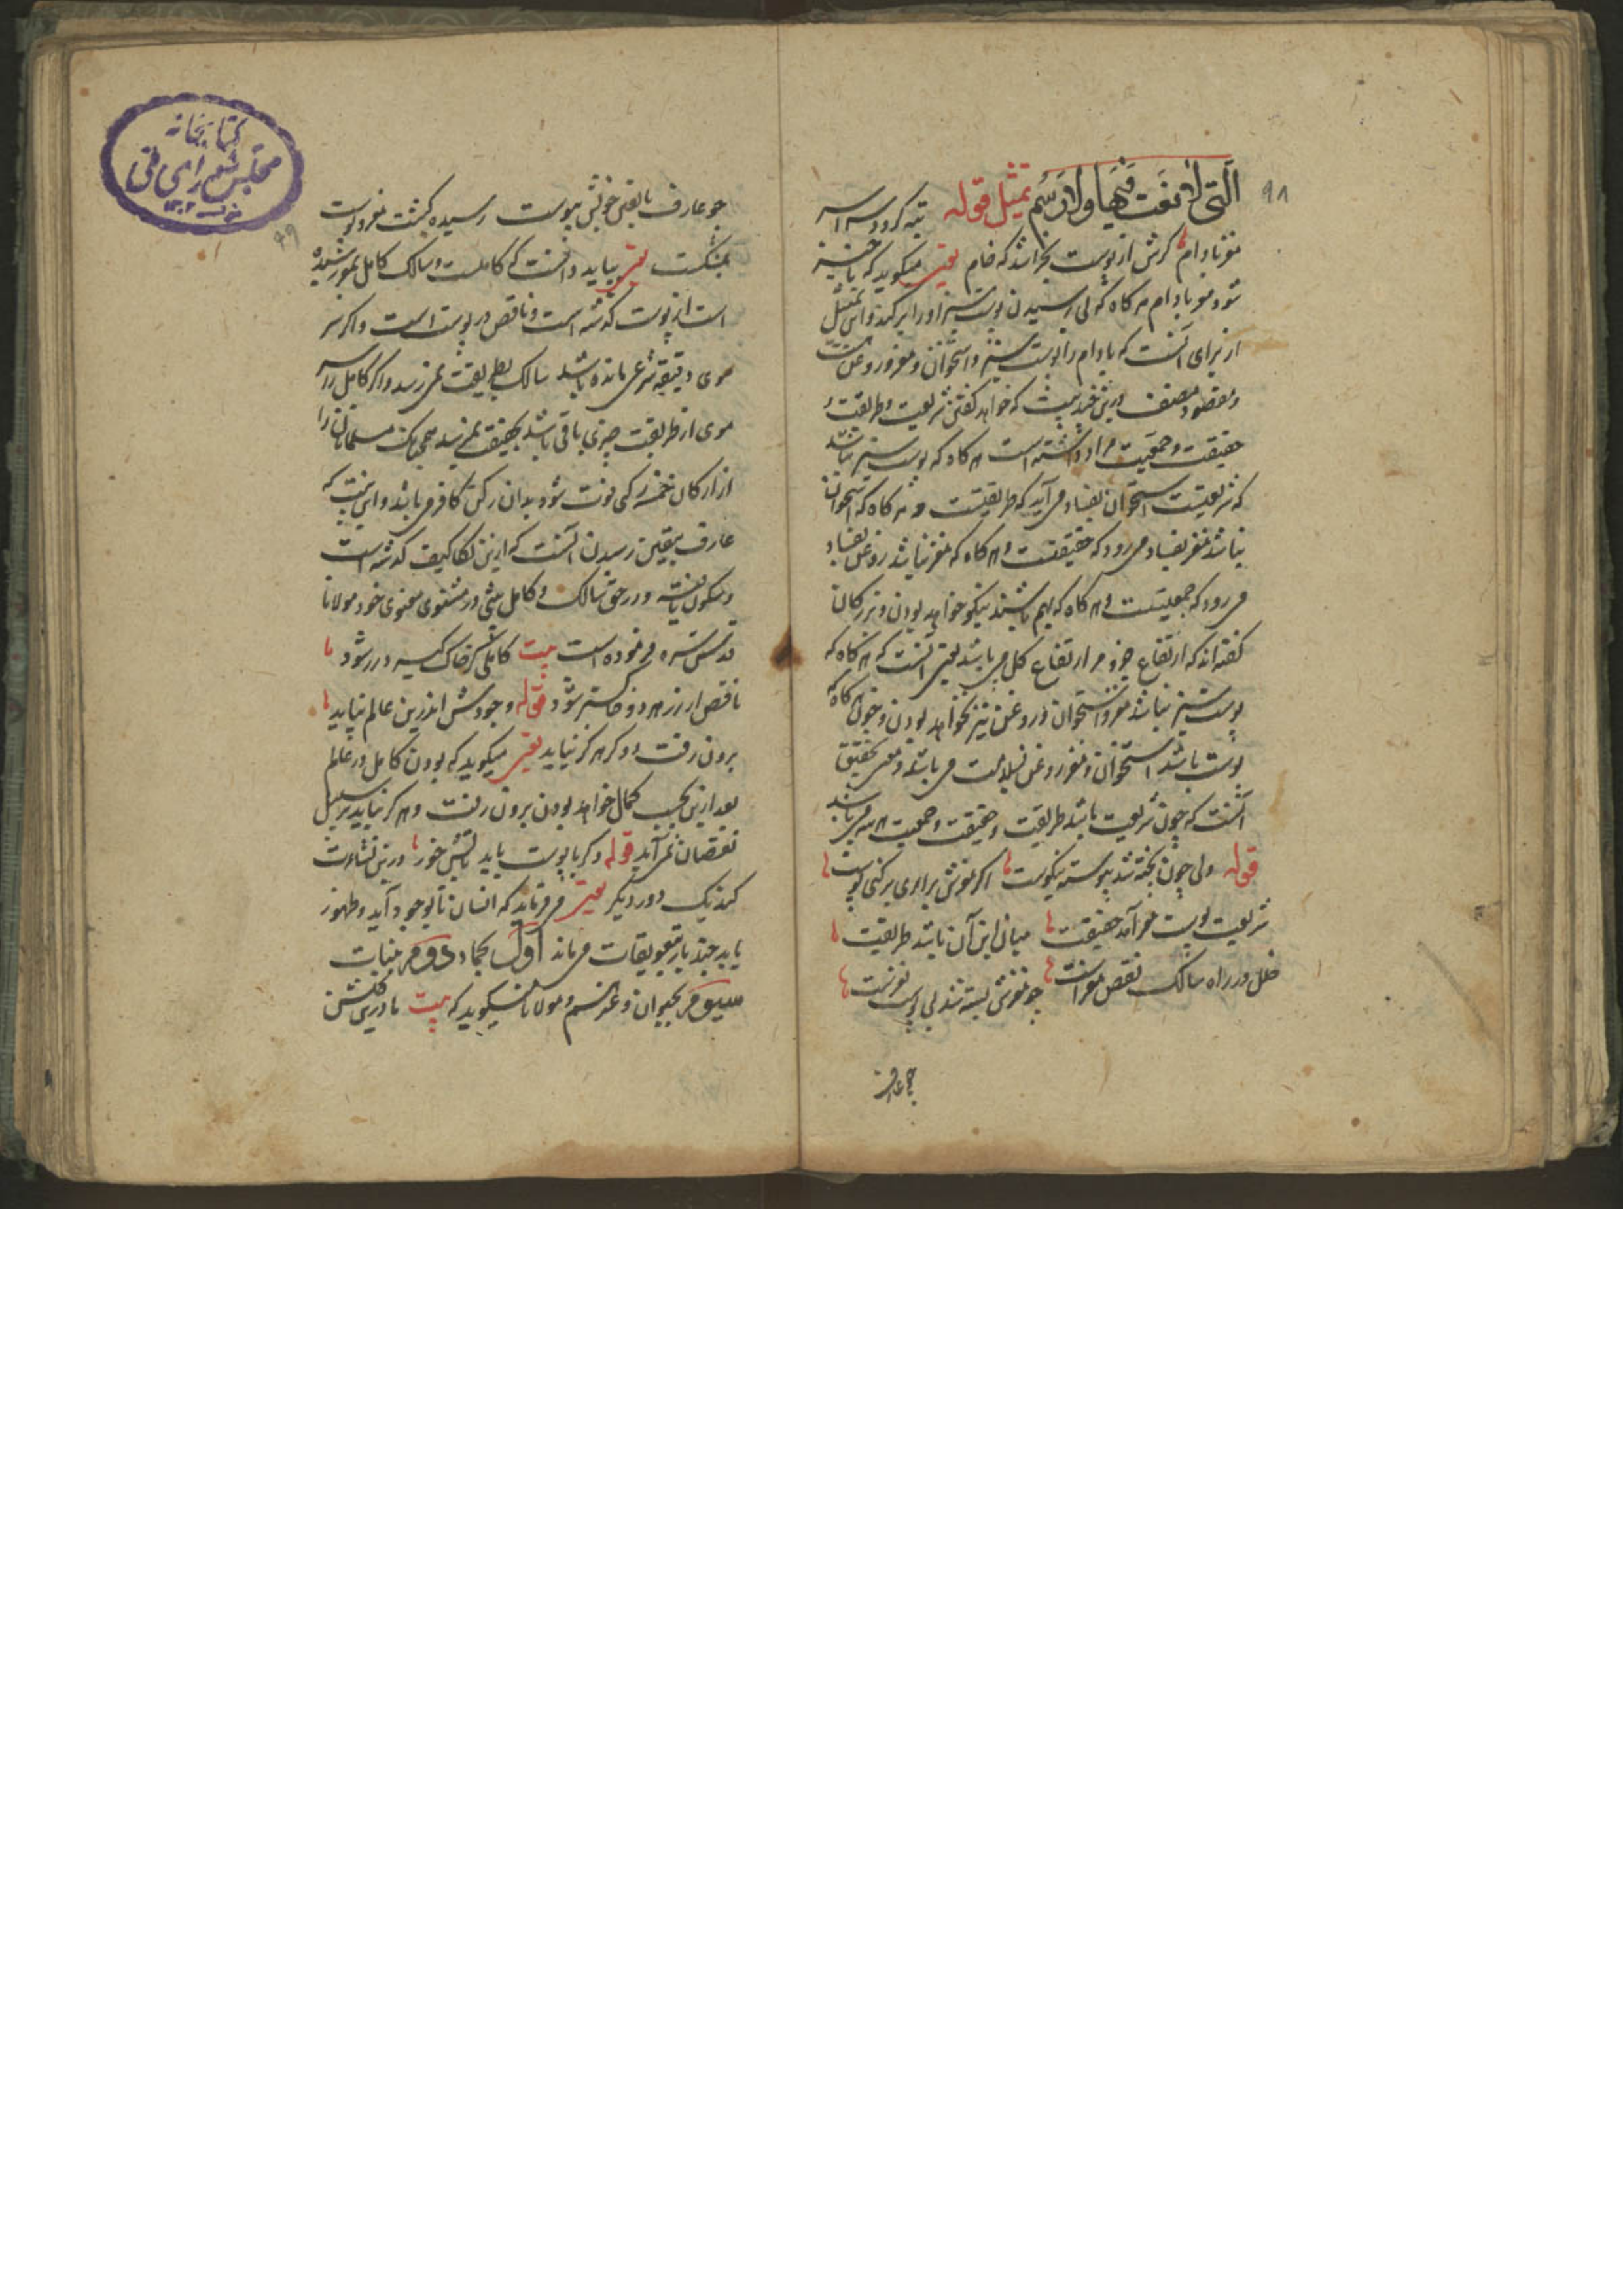 ۹۸
التی لا نعت فیها ولا رسم تمثیل قوله تبه کردد سراسر
مغز بادام گرش از پوست بخراشند که خام یعنی میگوید که ناچیز
شود مغز بادام هر کاه که بی رسیدن پوست سبز او را بر کنند و این تمثیل
از برای آنست که بادام را پوست سبز و استخوان و مغز و روغن است
و مقصود مصنف درین چند بیت که خواهد گفتن شریعت و طریقت و
حقیقت و جمعیت مراد داشته است هر کاه که پوست سبز نباشد
که شریعتست استخوان بفساد می آید که طریقتست و هر کاه که استخوان
نباشد مغز بفساد می رود که حقیقتست و هر کاه که مغز نباشد روغن بفساد
می رود که جمعیتست و هر کاه که بهم باشند نیکو خواهد بودن و بزرکان
کفته اند که ارتفاع جزو مر ارتفاع کل می باشد یعنی آنست که هر کاه که
پوست سبز نباشد مغز و استخوان و روغن نیز نخواهد بودن و چون هر کاه که
پوست باشد استخوان و مغز و روغن بسلامت می باشد و معنی تحقیق
آنست که چون شریعت باشد طریقت و حقیقت و جمعیت همه می باشد
قوله ولی چون پخته شد پیوسته نیکوست اگر مغزش برآری برکنی پوست
شریعت پوست مغز آمد حقیقت میان این و آن باشد طریقت
خلل در راه سالک نقص مغزاست چو مغزش پسته شد بی پوست نغزست
چو عارف
کتابخانه
مجلس شورای ملی
۹۹
چو عارف با یقین خویش پیوست رسیده کشت مغز و پوست
بشکست یعنی بباید دانست که کاملست و سالک کامل بمغز رسیده
است از پوست گذشته است و ناقص در پوست است و اگر سر
موی دقیقه شرعی مانده باشد سالک بطریقت نمی رسد و اگر کامل را سر
موی از طریقت چیزی باقی باشد بحقیقت نمی رسد همچنانک مسلمانان را
از ارکان خمسه رکنی فوت شود بدان رکن کافر می باشد و این نیست که
عارف بیقین رسیدن آنست که ازین تکالیف گذشته است
و سکون یافته و در حق سالک و کامل بیتی در مثنوی معنوی خود مولانا
قدس سره فرموده است بیت کاملی گر خاک گیرد زر شود
ناقص ار زر برد خاکستر شود قوله وجودش اندرین عالم نپاید
برون رفت و دگر هرگز نیاید یعنی میگوید که بودن کامل در عالم
بعد ازین بحسب کمال خواهد بودن برون رفت و هرگز نیاید بر سبیل
نقصان نمی آید قوله وگر با پوست یابد تابش خور درین نشاءت
کند یک دور دیگر یعنی می فرماید که انسان تا بوجود آید و ظهور
یابد چند بار بتعویقات می ماند اول بجماد دوم بنبات
سیوم بحیوان و غیر هم و مولانا میگوید که بیت ما درین گلشن